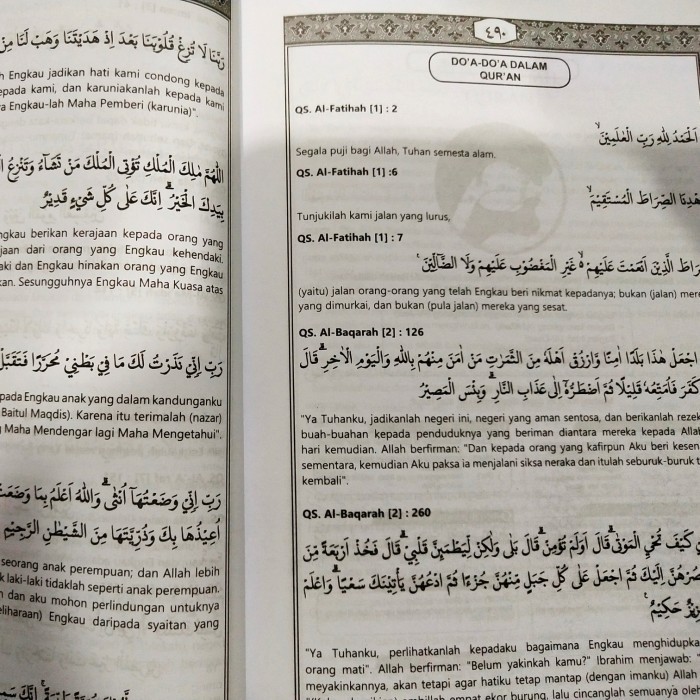 رَبَّنَا لَا تُزِغْ قُلُوْبَنَا بَعْدَ اِذْ هَدَيْتَنَا وَهَبْ لَنَا مِنْ
h Engkau jadikan hati kami condong kepada
epada kami, dan karuniakanlah kepada kami
a Engkau-lah Maha Pemberi (karunia)".
اللّٰهُمَّ مٰلِكَ الْمُلْكِ تُؤْتِى الْمُلْكَ مَنْ تَشَاۤءُ وَتَنْزِعُ
بِيَدِكَ الْخَيْرُ ۗ اِنَّكَ عَلٰى كُلِّ شَيْءٍ قَدِيْرٌ
ngkau berikan kerajaan kepada orang yang
jaan dari orang yang Engkau kehendaki.
aki dan Engkau hinakan orang yang Engkau
kan. Sesungguhnya Engkau Maha Kuasa atas
رَبِّ اِنِّيْ نَذَرْتُ لَكَ مَا فِيْ بَطْنِيْ مُحَرَّرًا فَتَقَبَّلْ
pada Engkau anak yang dalam kandunganku
Baitul Maqdis). Karena itu terimalah (nazar)
g Maha Mendengar lagi Maha Mengetahui".
رَبِّ اِنِّيْ وَضَعْتُهَآ اُنْثٰىۗ وَاللّٰهُ اَعْلَمُ بِمَا وَضَعَتْ
اُعِيْذُهَا بِكَ وَذُرِّيَّتَهَا مِنَ الشَّيْطٰنِ الرَّجِيْمِ
seorang anak perempuan; dan Allah lebih
k laki-laki tidaklah seperti anak perempuan.
n dan aku mohon perlindungan untuknya
eliharaan) Engkau daripada syaitan yang
٤٩٠
DO'A-DO'A DALAM
QUR'AN
QS. Al-Fatihah [1] : 2
اَلْحَمْدُ لِلّٰهِ رَبِّ الْعٰلَمِيْنَۙ
Segala puji bagi Allah, Tuhan semesta alam.
QS. Al-Fatihah [1] :6
هْدِنَا الصِّرَاطَ الْمُسْتَقِيْمَۙ
Tunjukilah kami jalan yang lurus,
QS. Al-Fatihah [1] : 7
رَاطَ الَّذِيْنَ اَنْعَمْتَ عَلَيْهِمْ ەۙ غَيْرِ الْمَغْضُوْبِ عَلَيْهِمْ وَلَا الضَّاۤلِّيْنَ
(yaitu) jalan orang-orang yang telah Engkau beri nikmat kepadanya; bukan (jalan) mere
yang dimurkai, dan bukan (pula jalan) mereka yang sesat.
QS. Al-Baqarah [2] : 126
اجْعَلْ هٰذَا بَلَدًا اٰمِنًا وَّارْزُقْ اَهْلَهٗ مِنَ الثَّمَرٰتِ مَنْ اٰمَنَ مِنْهُمْ بِاللّٰهِ وَالْيَوْمِ الْاٰخِرِۗ قَالَ
كَفَرَ فَاُمَتِّعُهٗ قَلِيْلًا ثُمَّ اَضْطَرُّهٗٓ اِلٰى عَذَابِ النَّارِۗ وَبِئْسَ الْمَصِيْرُ
"Ya Tuhanku, jadikanlah negeri ini, negeri yang aman sentosa, dan berikanlah rezek
buah-buahan kepada penduduknya yang beriman diantara mereka kepada Alla
hari kemudian. Allah berfirman: "Dan kepada orang yang kafirpun Aku beri kesen
sementara, kemudian Aku paksa ia menjalani siksa neraka dan itulah seburuk-buruk t
kembali".
QS. Al-Baqarah [2] : 260
كَيْفَ تُحْيِ الْمَوْتٰىۗ قَالَ اَوَلَمْ تُؤْمِنْۗ قَالَ بَلٰى وَلٰكِنْ لِّيَطْمَىِٕنَّ قَلْبِيْۗ قَالَ فَخُذْ اَرْبَعَةً مِّنَ
صُرْهُنَّ اِلَيْكَ ثُمَّ اجْعَلْ عَلٰى كُلِّ جَبَلٍ مِّنْهُنَّ جُزْءًا ثُمَّ ادْعُهُنَّ يَأْتِيْنَكَ سَعْيًاۗ وَاعْلَمْ
زِيْزٌ حَكِيْمٌ
"Ya Tuhanku, perlihatkanlah kepadaku bagaimana Engkau menghidupka
orang mati". Allah berfirman: "Belum yakinkah kamu?" Ibrahim menjawab: "
meyakinkannya, akan tetapi agar hatiku tetap mantap (dengan imanku) Allah